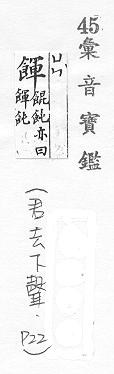 45彙音寶鑑
ㄩㄣ
餫
餛飩亦曰
餫飩
(君去下聲.P22)